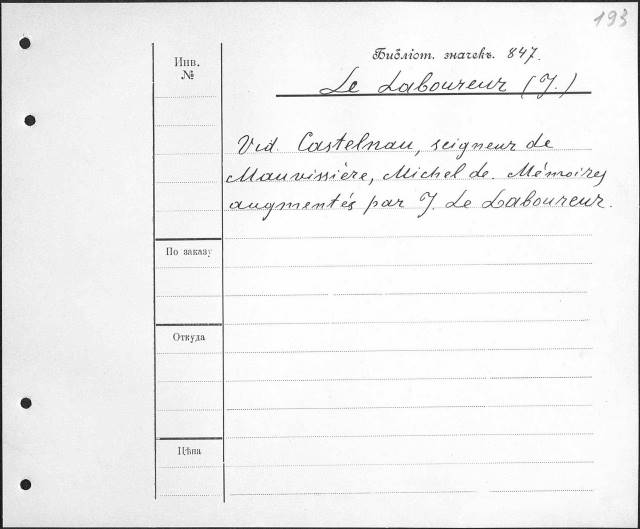 193
Инв.
№
Библіот. значекъ. 847.
Le Laboureur (J.)
Vid. Castelnau, seigneur de
Mauvissière, Michel de. Mémoires
augmentés par J. Le Laboureur.
По заказу
Откуда
Цѣна